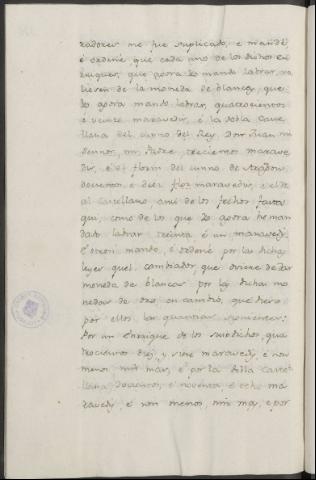 radores me fue suplicado, e mandè,
è ordenè que cada uno de los dichos en
riques, que agora Yo mando labrar, va
liesen de la moneda de blancas, que
Yo agora mando labrar, quatrocientos
è veinte maravedis, è la dobla Caste
llana del cunno del Rey Don Juan mi
sennor, mi Padre trecientos marave
dis, è el florin del cunno de Aragon
docientos è diez maravedis, è el de
al Castellano, ansi de los fechos fasta
qui, como de los que Yo agora he man
dado labrar treinta è un maravedis.
E otrosi mando, è ordenè por las dichas
leyes quel cambiador que oviere de dar
moneda de blancas por las dichas mo
nedas de oro en cambio, que diese
por ellos las quantias siguientes:
Por un Enrique de los susodichos, qua
trocientos diez y siete maravedis, è non
menos nin mas, è por la dobla Caste
llana docientos, è noventa è ocho ma
ravedis, è non menos, nin mas, e por